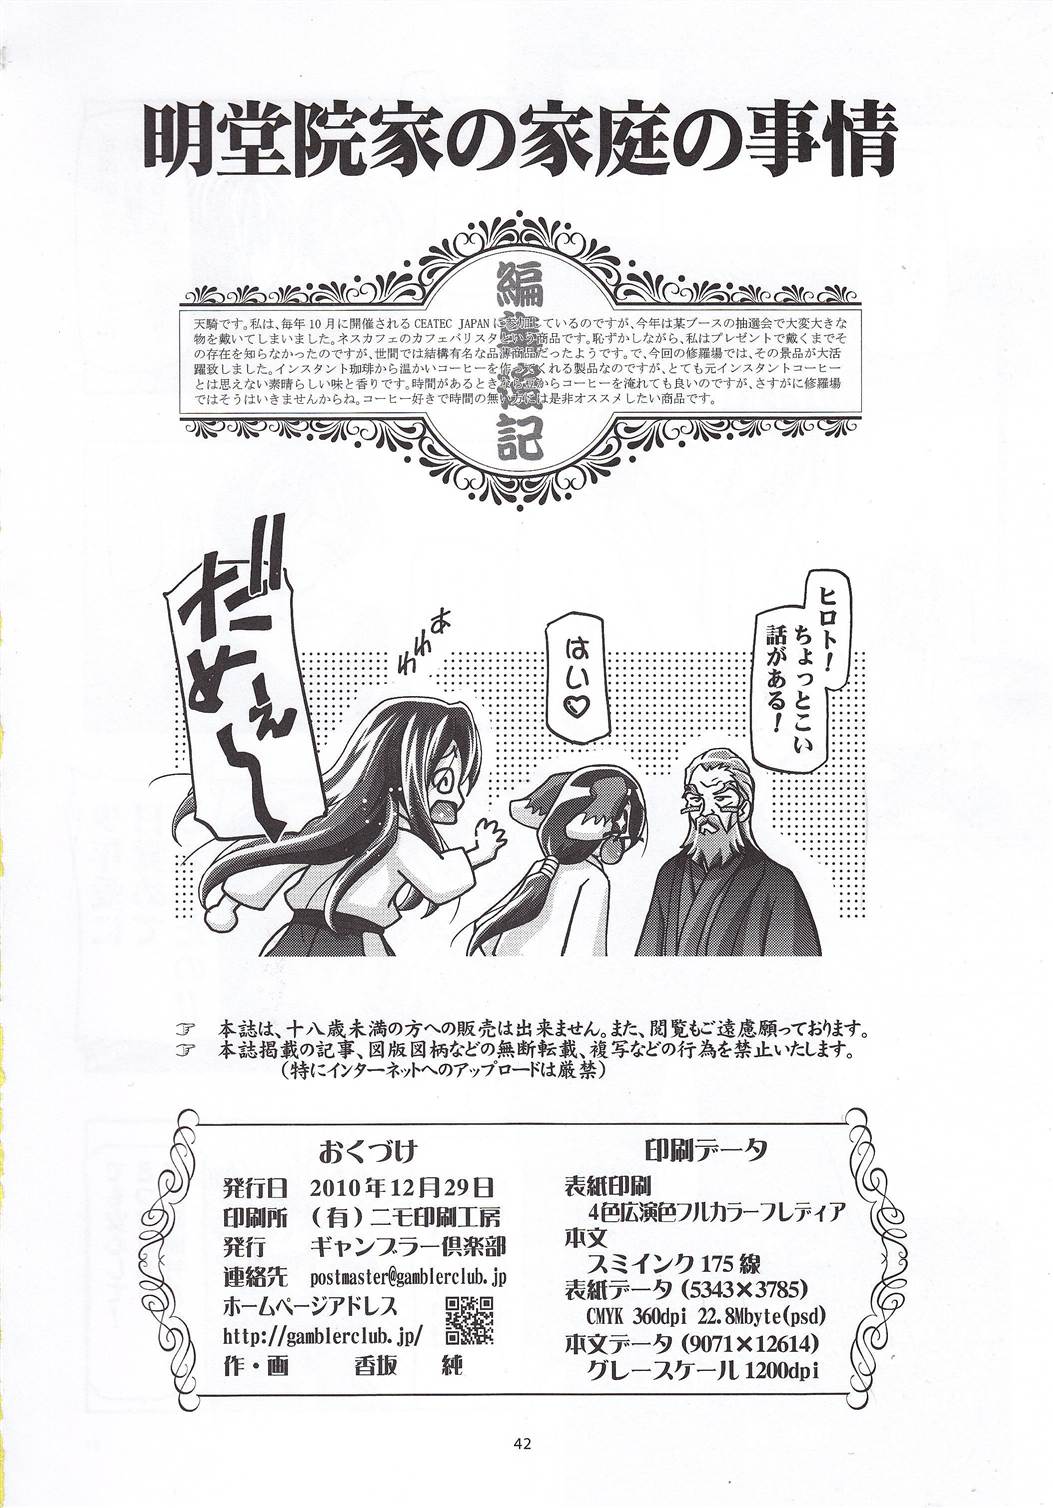 明堂院家の家庭の事情
編集後記
天騎です。私は、毎年10月に開催されるCEATEC JAPANに参加しているのですが、今年は某ブースの抽選会で大変大きな
物を戴いてしまいました。ネスカフェのカフェバリスタという商品です。恥ずかしながら、私はプレゼントで戴くまでそ
の存在を知らなかったのですが、世間では結構有名な品薄商品だったようです。で、今回の修羅場では、その景品が大活
躍致しました。インスタント珈琲から温かいコーヒーを作ってくれる製品なのですが、とても元インスタントコーヒー
とは思えない素晴らしい味と香りです。時間があるときなら豆からコーヒーを淹れても良いのですが、さすがに修羅場
ではそうはいきませんからね。コーヒー好きで時間の無い方には是非オススメしたい商品です。
ヒロト！
ちょっとこい
話がある！
はい♡
あわわ
だめぇ〜!!
☞ 本誌は、十八歳未満の方への販売は出来ません。また、閲覧もご遠慮願っております。
☞ 本誌掲載の記事、図版図柄などの無断転載、複写などの行為を禁止いたします。
（特にインターネットへのアップロードは厳禁）
おくづけ
発行日 2010年12月29日
印刷所 （有）ニモ印刷工房
発行 ギャンブラー倶楽部
連絡先 postmaster@gamblerclub.jp
ホームページアドレス
http://gamblerclub.jp/
作・画 香坂 純
印刷データ
表紙印刷
4色広演色フルカラーフレディア
本文
スミインク175線
表紙データ（5343×3785）
CMYK 360dpi 22.8Mbyte(psd)
本文データ（9071×12614）
グレースケール1200dpi
42